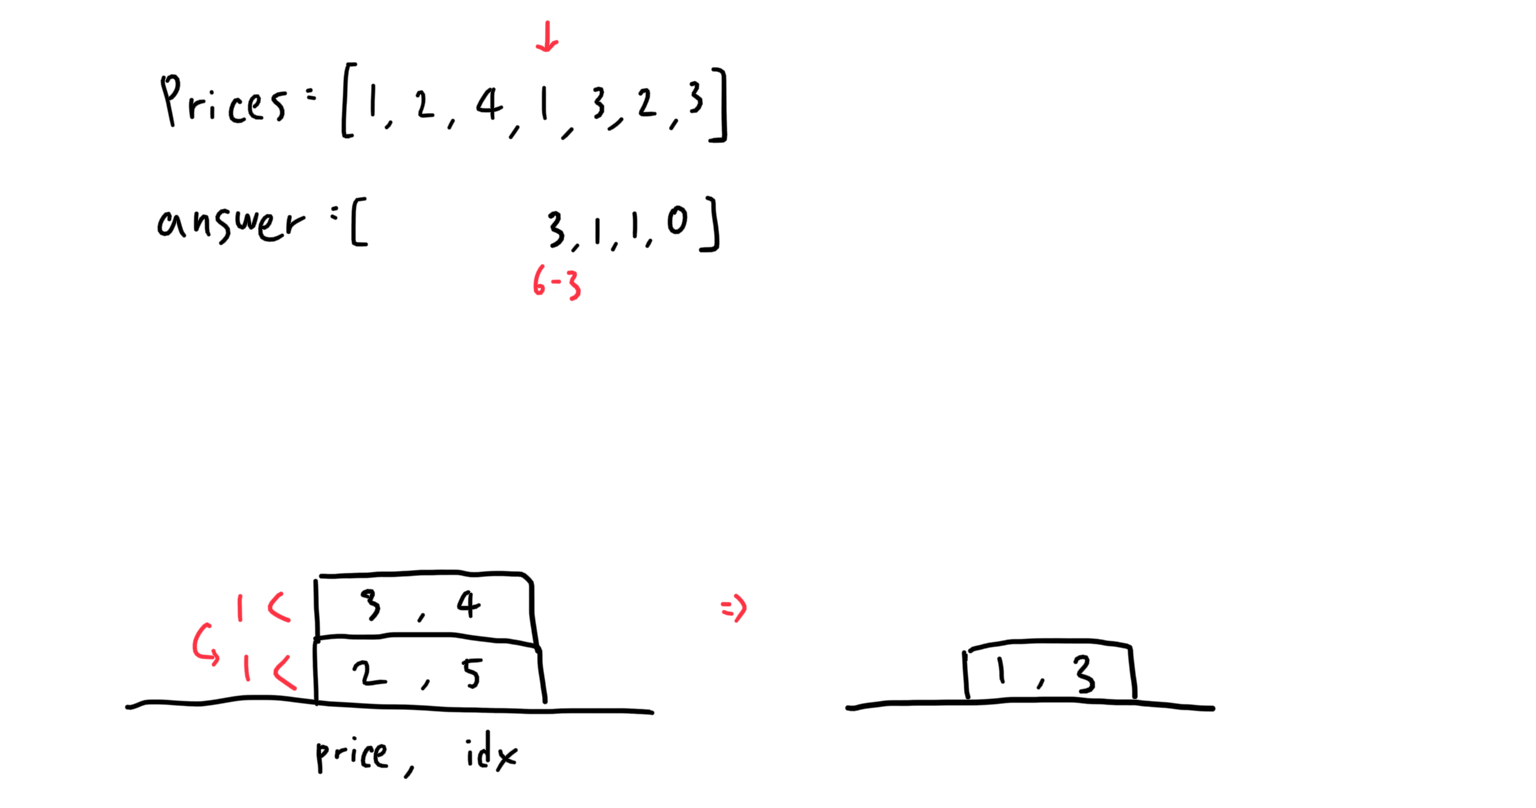 ↓
Prices = [1, 2, 4, 1, 3, 2, 3]
answer = [ 3, 1, 1, 0 ]
6-3
1 < 3 , 4
1 < 2 , 5
=>
1 , 3
price , idx